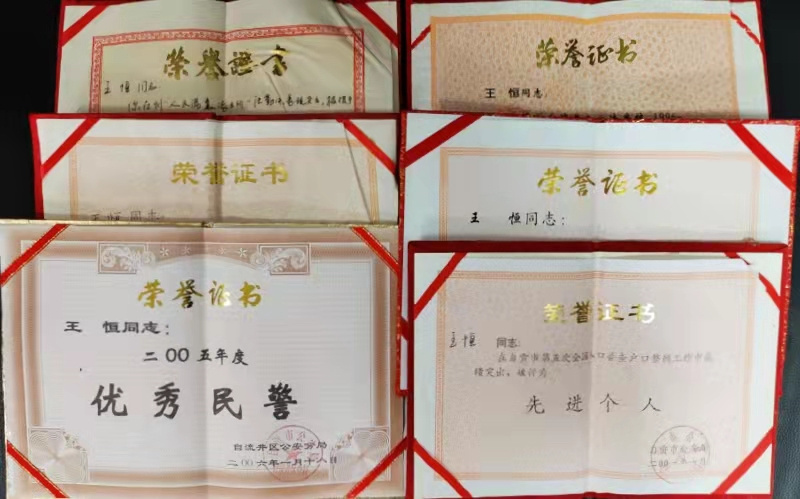 荣誉證书
王恒同志
荣誉证书
王 恒同志:
荣誉证书
王 恒同志:
荣誉证书
王 恒同志:
荣誉证书
王 恒同志:
二00五年度
优秀民警
自流井区公安分局
二00六年一月十八日
荣誉证书
王恒 同志:
在自贡市第五次全国人口普查户口整顿工作中成
绩突出,被评为
先进个人